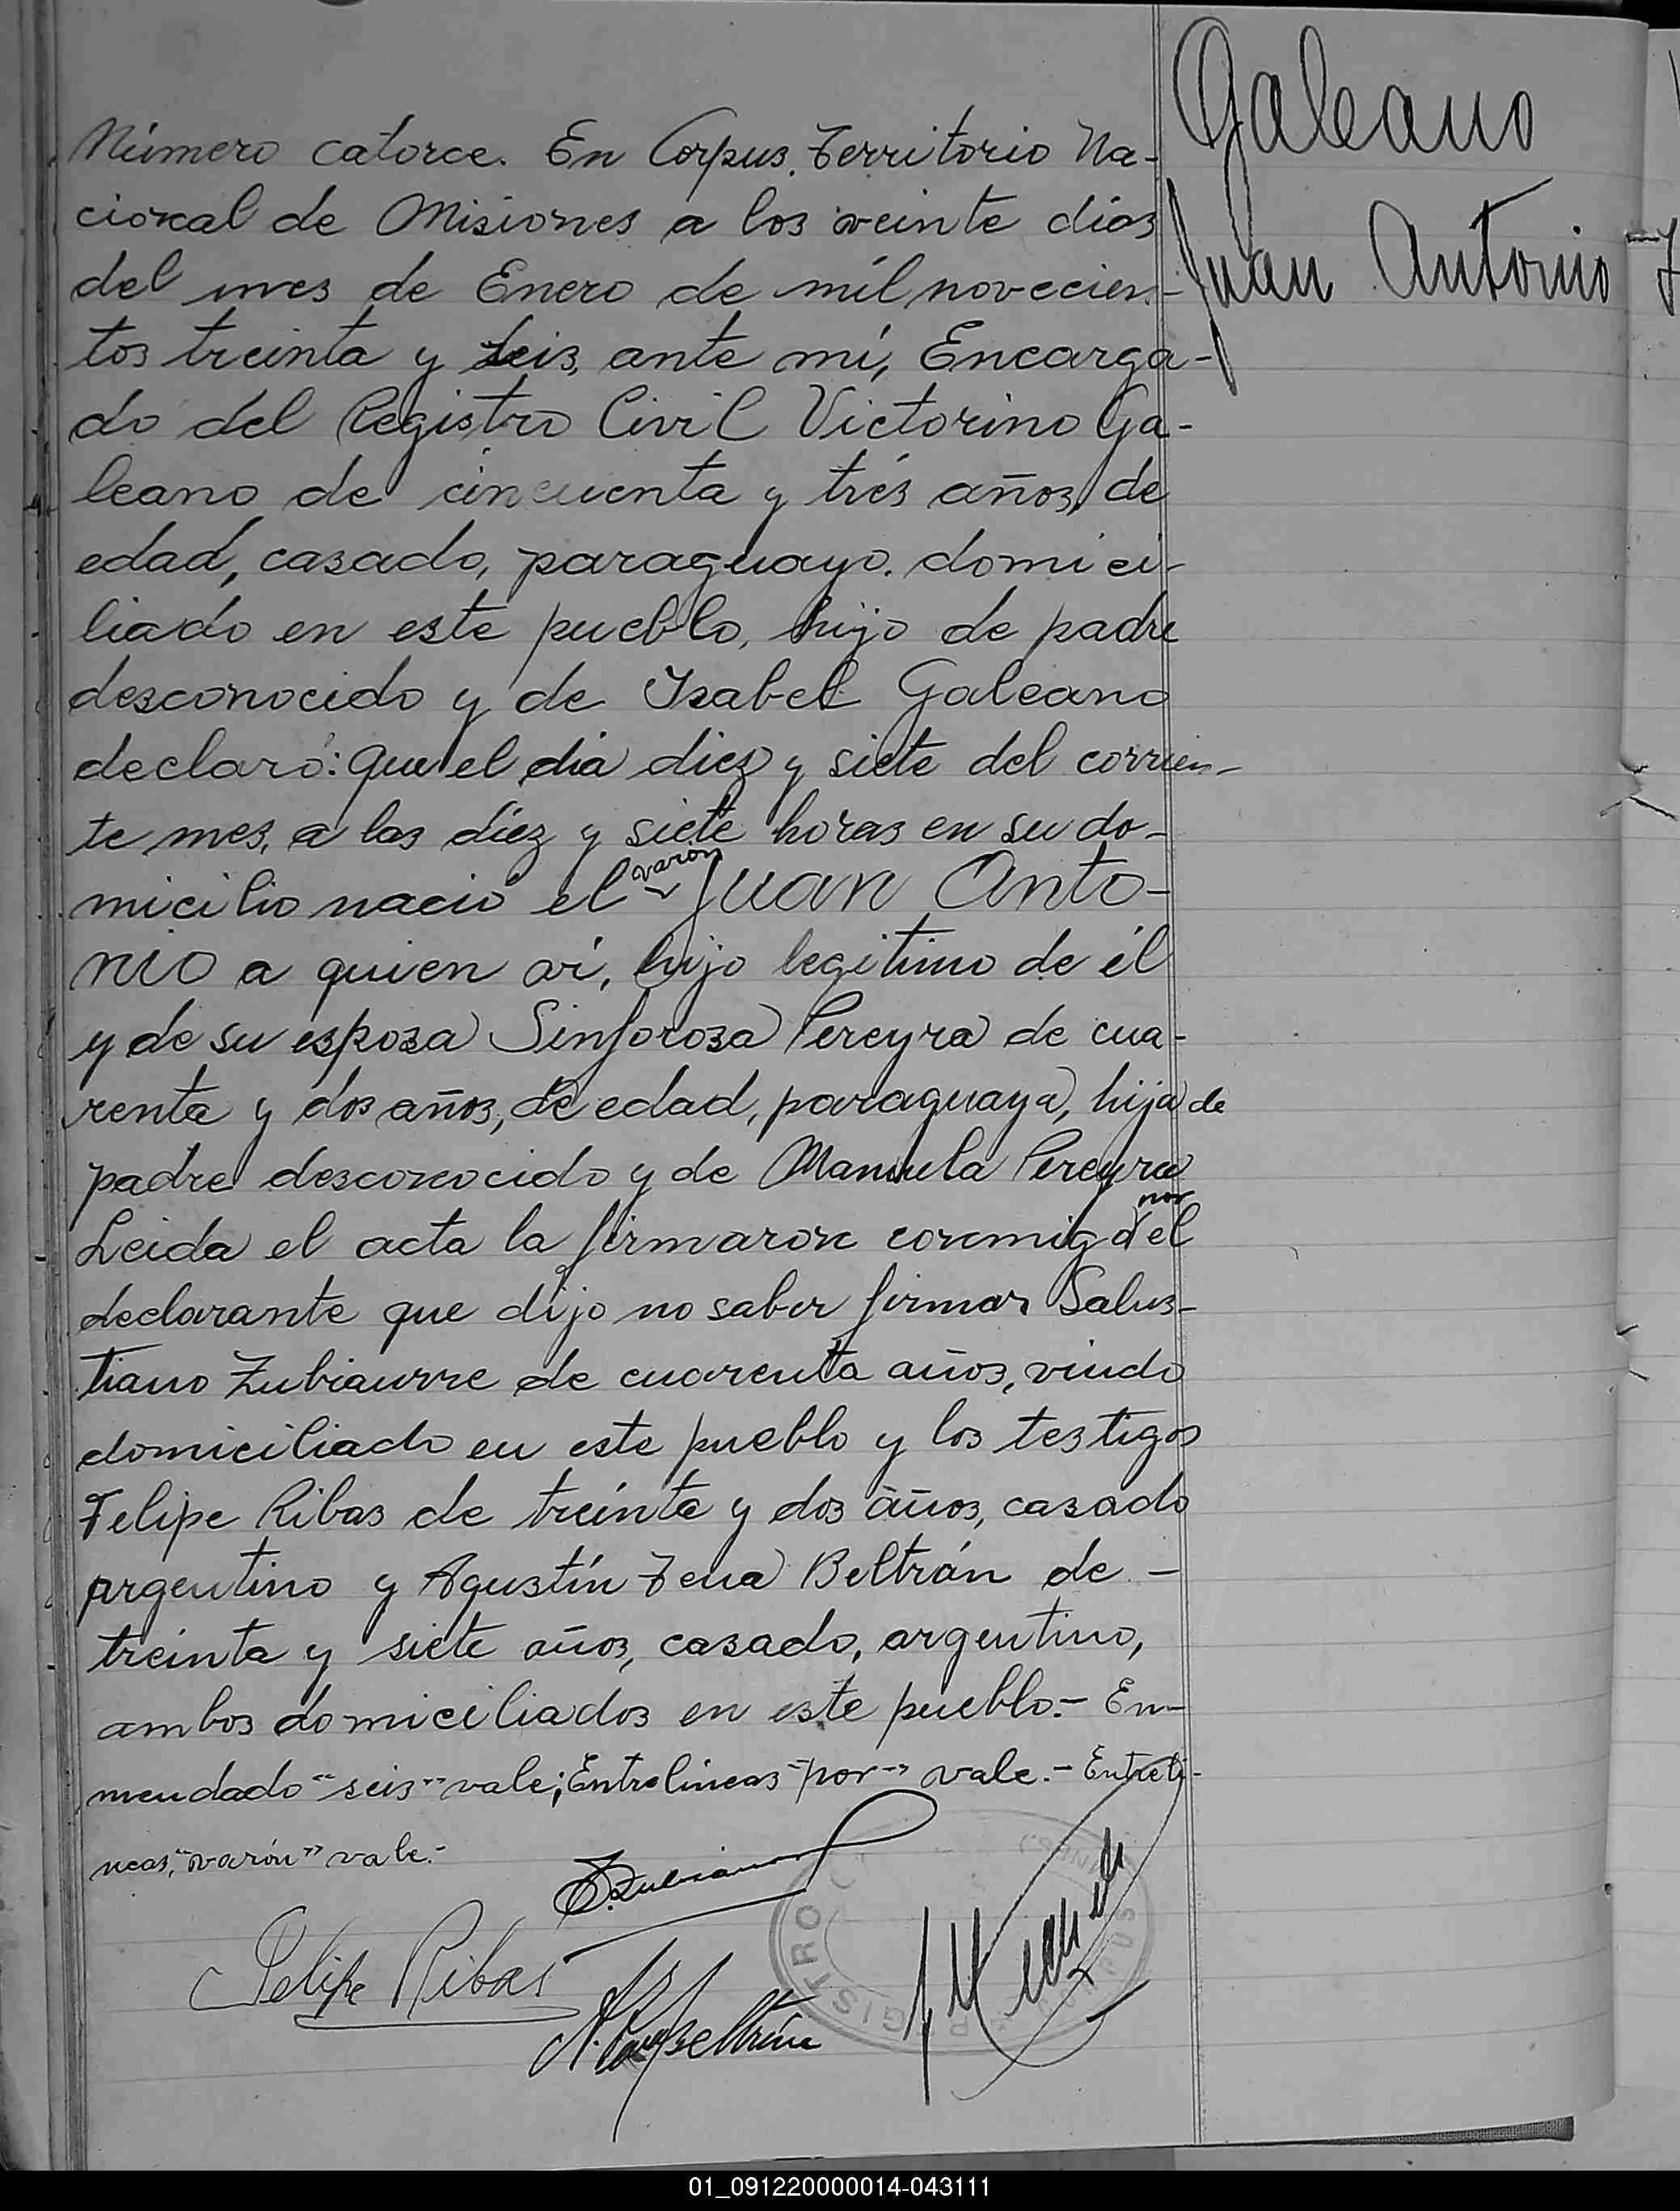 Galeano
Juan Antonio
Número catorce. En Corpus, Territorio Na-
cional de Misiones a los veinte días
del mes de Enero de mil novecien-
tos treinta y seis, ante mí, Encarga-
do del Registro Civil Victorino Ga-
leano de cincuenta y trés años, de
edad, casado, paraguayo. domici-
liado en este pueblo, hijo de padre
desconocido y de Isabel Galeano
declaró: Que el día diez y siete del corrien-
te mes, a las díez y siete horas en su do-
varón
micilio nació el Juan Anto-
nio a quien ví, hijo legítimo de él
y de su esposa Sinforosa Pereyra de cua-
renta y dos años, de edad, paraguaya, hija de
padre desconocido y de Manuela Pereyra
por
Leida el acta la firmaron conmigo el
declarante que dijo no saber firmar Salus-
tiano Zubiaurre de cuarenta años, viudo
domiciliado en este pueblo y los testigos
Felipe Ribas de treínta y dos años, casado
argentino y Agustín Beltrán de -
treínta y siete años, casado, argentino,
ambos domiciliados en este pueblo.- En-
mendado "seis" vale; Entrelineas "por" vale.- Entreli-
neas, "varón" vale.-
S. Zubiaurre
Felipe Ribas
REGISTRO C
CORPUS
01_091220000014-043111